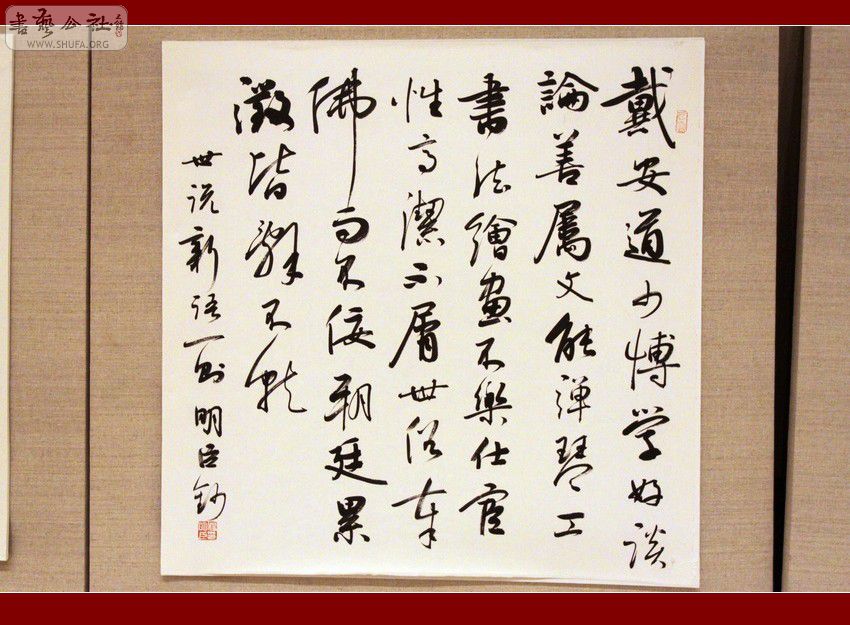 書藝公社
WWW.SHUFA.ORG
戴安道少博学好談
論善屬文能弹琴工
書法繪畫不樂仕宦
性高潔不屑世俗奉
佛而不佞朝廷累
徵皆辞不就
世说新语一则 明臣钞